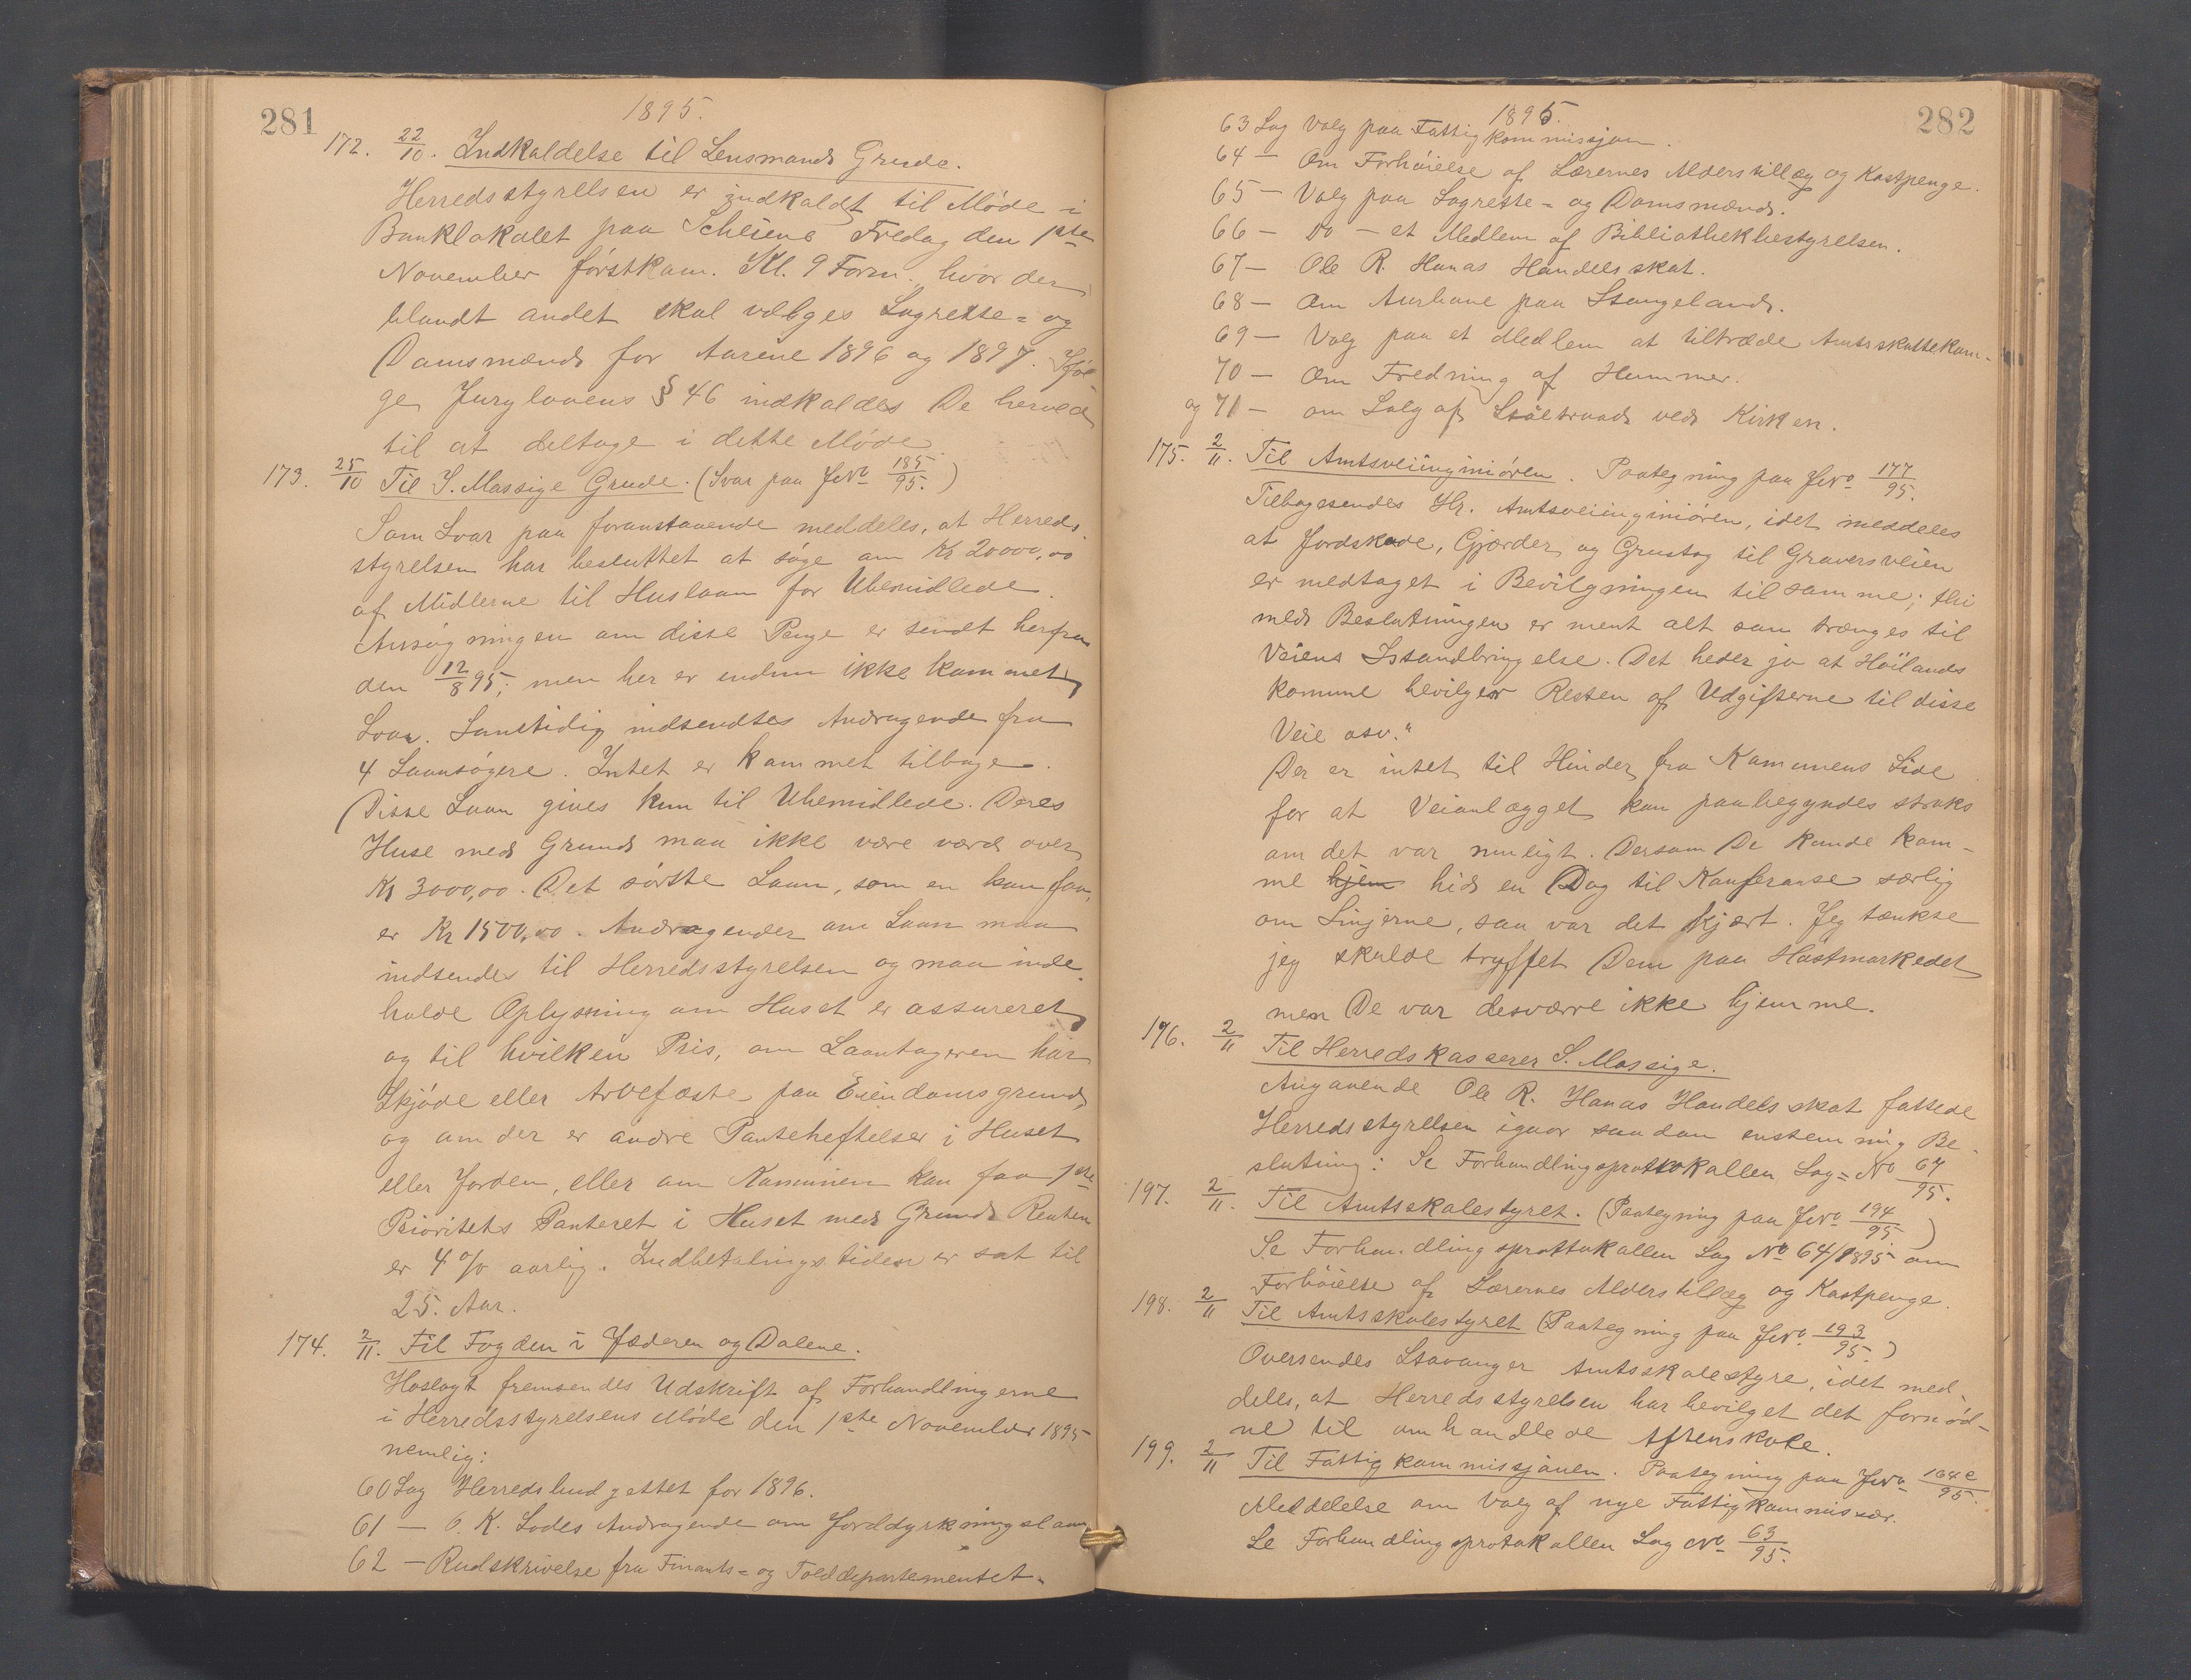 281
1895.
172. 22/10. Indkaldelse til Lensmand Grude.
Herredsstyrelsen er indkaldt til Møde i
Banklokalet paa Scheiene Fredag den 1ste
November førstkom. Kl. 9 Form. hvor der
blandt andet skal vælges Lagrette= og
Domsmænd for Aarene 1896 og 1897. Iføl-
ge Jurylovens § 46 indkaldes De herved
til at deltage i dette Møde.
173. 25/10 Til S. Massige Grude. (Svar paa JNo 185/95.)
Som Svar paa foranstaaende meddeles, at Herreds-
styrelsen har besluttet at søge om Kr 20000,00
af Midlerne til Huslaan for Ubemidlede.
Ansøgningen om disse Penge er sendt herfra
den 12/8 95; men her er endnu ikke kommet
Svar. Samtidig indsendtes Andragende fra
4 Laansøgere. Intet er kommet tilbage.
Disse Laan gives kun til Ubemidlede. Deres
Huse med Grund maa ikke være værd over
Kr 3000,00. Det største Laan, som en kan faa,
er Kr 1500,00. Andragender om Laan maa
indsendes til Herredsstyrelsen og maa inde-
holde Oplysning om Huset er assureret
og til hvilken Pris, om Laantageren har
Skjøde eller Arvefæste paa Eiendomsgrund,
og om der er andre Panteheftelser i Huset
eller Jorden, eller om Kommunen kan faa 1ste
Prioritets Panteret i Huset med Grund Renten
er 4 % aarlig. Indbetalingstiden er sat til
25. Aar.
174. 2/11. Til Fogden i Jæderen og Dalene.
Hoslagt fremsendes Udskrift af Forhandlingerne
i Herredsstyrelsens Møde den 1ste November 1895
nemlig:
60 Sag Herredsbudgettet for 1896.
61 — O. K. Lodes Andragende om Jorddyrkningslaan
62 — Rundskrivelse fra Finants= og Tolddepartementet.
282
1895.
63 Sag Valg paa Fattigkommissjon.
64 — Om Forhøielse af Lærernes Alderstillæg og Kostpenge.
65 — Valg paa Lagrette= og Domsmænd.
66 — Do — et Medlem af Bibliothekbestyrelsen.
67 — Ole R. Hanas Handelsskat.
68 — Om Aurhane paa Stangeland.
69 — Valg paa et Medlem at tiltræde Amtsskattekom-
70 — Om Fredning af Hummer.
og 71 — om Salg af Staaltraad ved Kirken.
175. 2/11. Til Amtsveiingeniøren. Paategning paa JNo 177/95.
Tilbagesendes Hr. Amtsveiingeniøren, idet meddeles
at Jordskade, Gjærder og Grustag til Graversveien
er medtaget i Bevilgningen til samme; thi
med Beslutningen er ment alt som trænges til
Veiens Istandbringelse. Det heder jo at Høilands
komune bevilger Resten af Udgifterne til disse
Veie osv."
Der er intet til Hinder fra Kommunens Side
for at Veianlægget kan paabegyndes straks
om det var muligt. Dersom De kunde kom-
me hjem hid en Dag til Konferanse særlig
om Linjerne, saa var det kjært. Jeg tænkte
jeg skulde tryffet Dem paa Høstmarkedet
men De var desværre ikke hjemme.
196. 2/11 Til Herredskasserer S. Massige.
Angaaende Ole R. Hanas Handelsskat fattede
Herredsstyrelsen igaar saadan enstemmig Be-
slutning: Se Forhandlingsprottokollen Sag= No 67/95.
197. 2/11. Til Amtsskolestyret. (Paategning paa JNo 194/95.)
Se Forhandlingsprottokollen Sag No 64/1895 om
Forhøielse af Lærernes Alderstillæg og Kostpenge.
198. 2/11 Til Amtsskolestyret (Paategning paa JNo. 193/95.)
Oversendes Stavanger Amtsskolestyre, idet med-
deles, at Herredsstyrelsen har bevilget det fornød-
ne til omhandlede Aftenskole.
199. 2/11 Til Fattigkommissjonen. Paategning paa JNo 164c/95.
Meddelelse om Valg af nye Fattigkommissær.
Se Forhandlingsprotokollen Sag No 63/95.